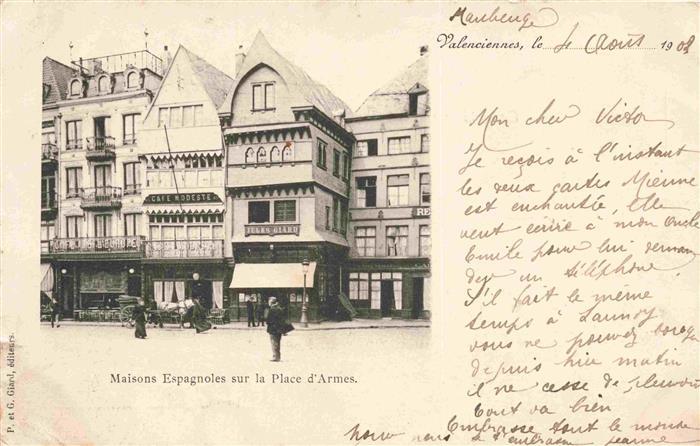 Maubeuge
Valenciennes, le 4 Août 1902
Mon cher Victor
Je reçois à l'instant
les deux cartes Mienne
est enchantée, Elle
veut écrire à mon Oncle
Emile pour lui deman
der un téléphone.
S'il fait le même
temps à Launoy
vous ne pouvez
depuis hier matin
il ne cesse de pleuvoir
tout va bien
Embrasse tout le monde
pour nous
Jeanne
CAFÉ MODESTE
JULES GIARD
RE
Maisons Espagnoles sur la Place d'Armes.
P. et G. Giard, éditeurs.